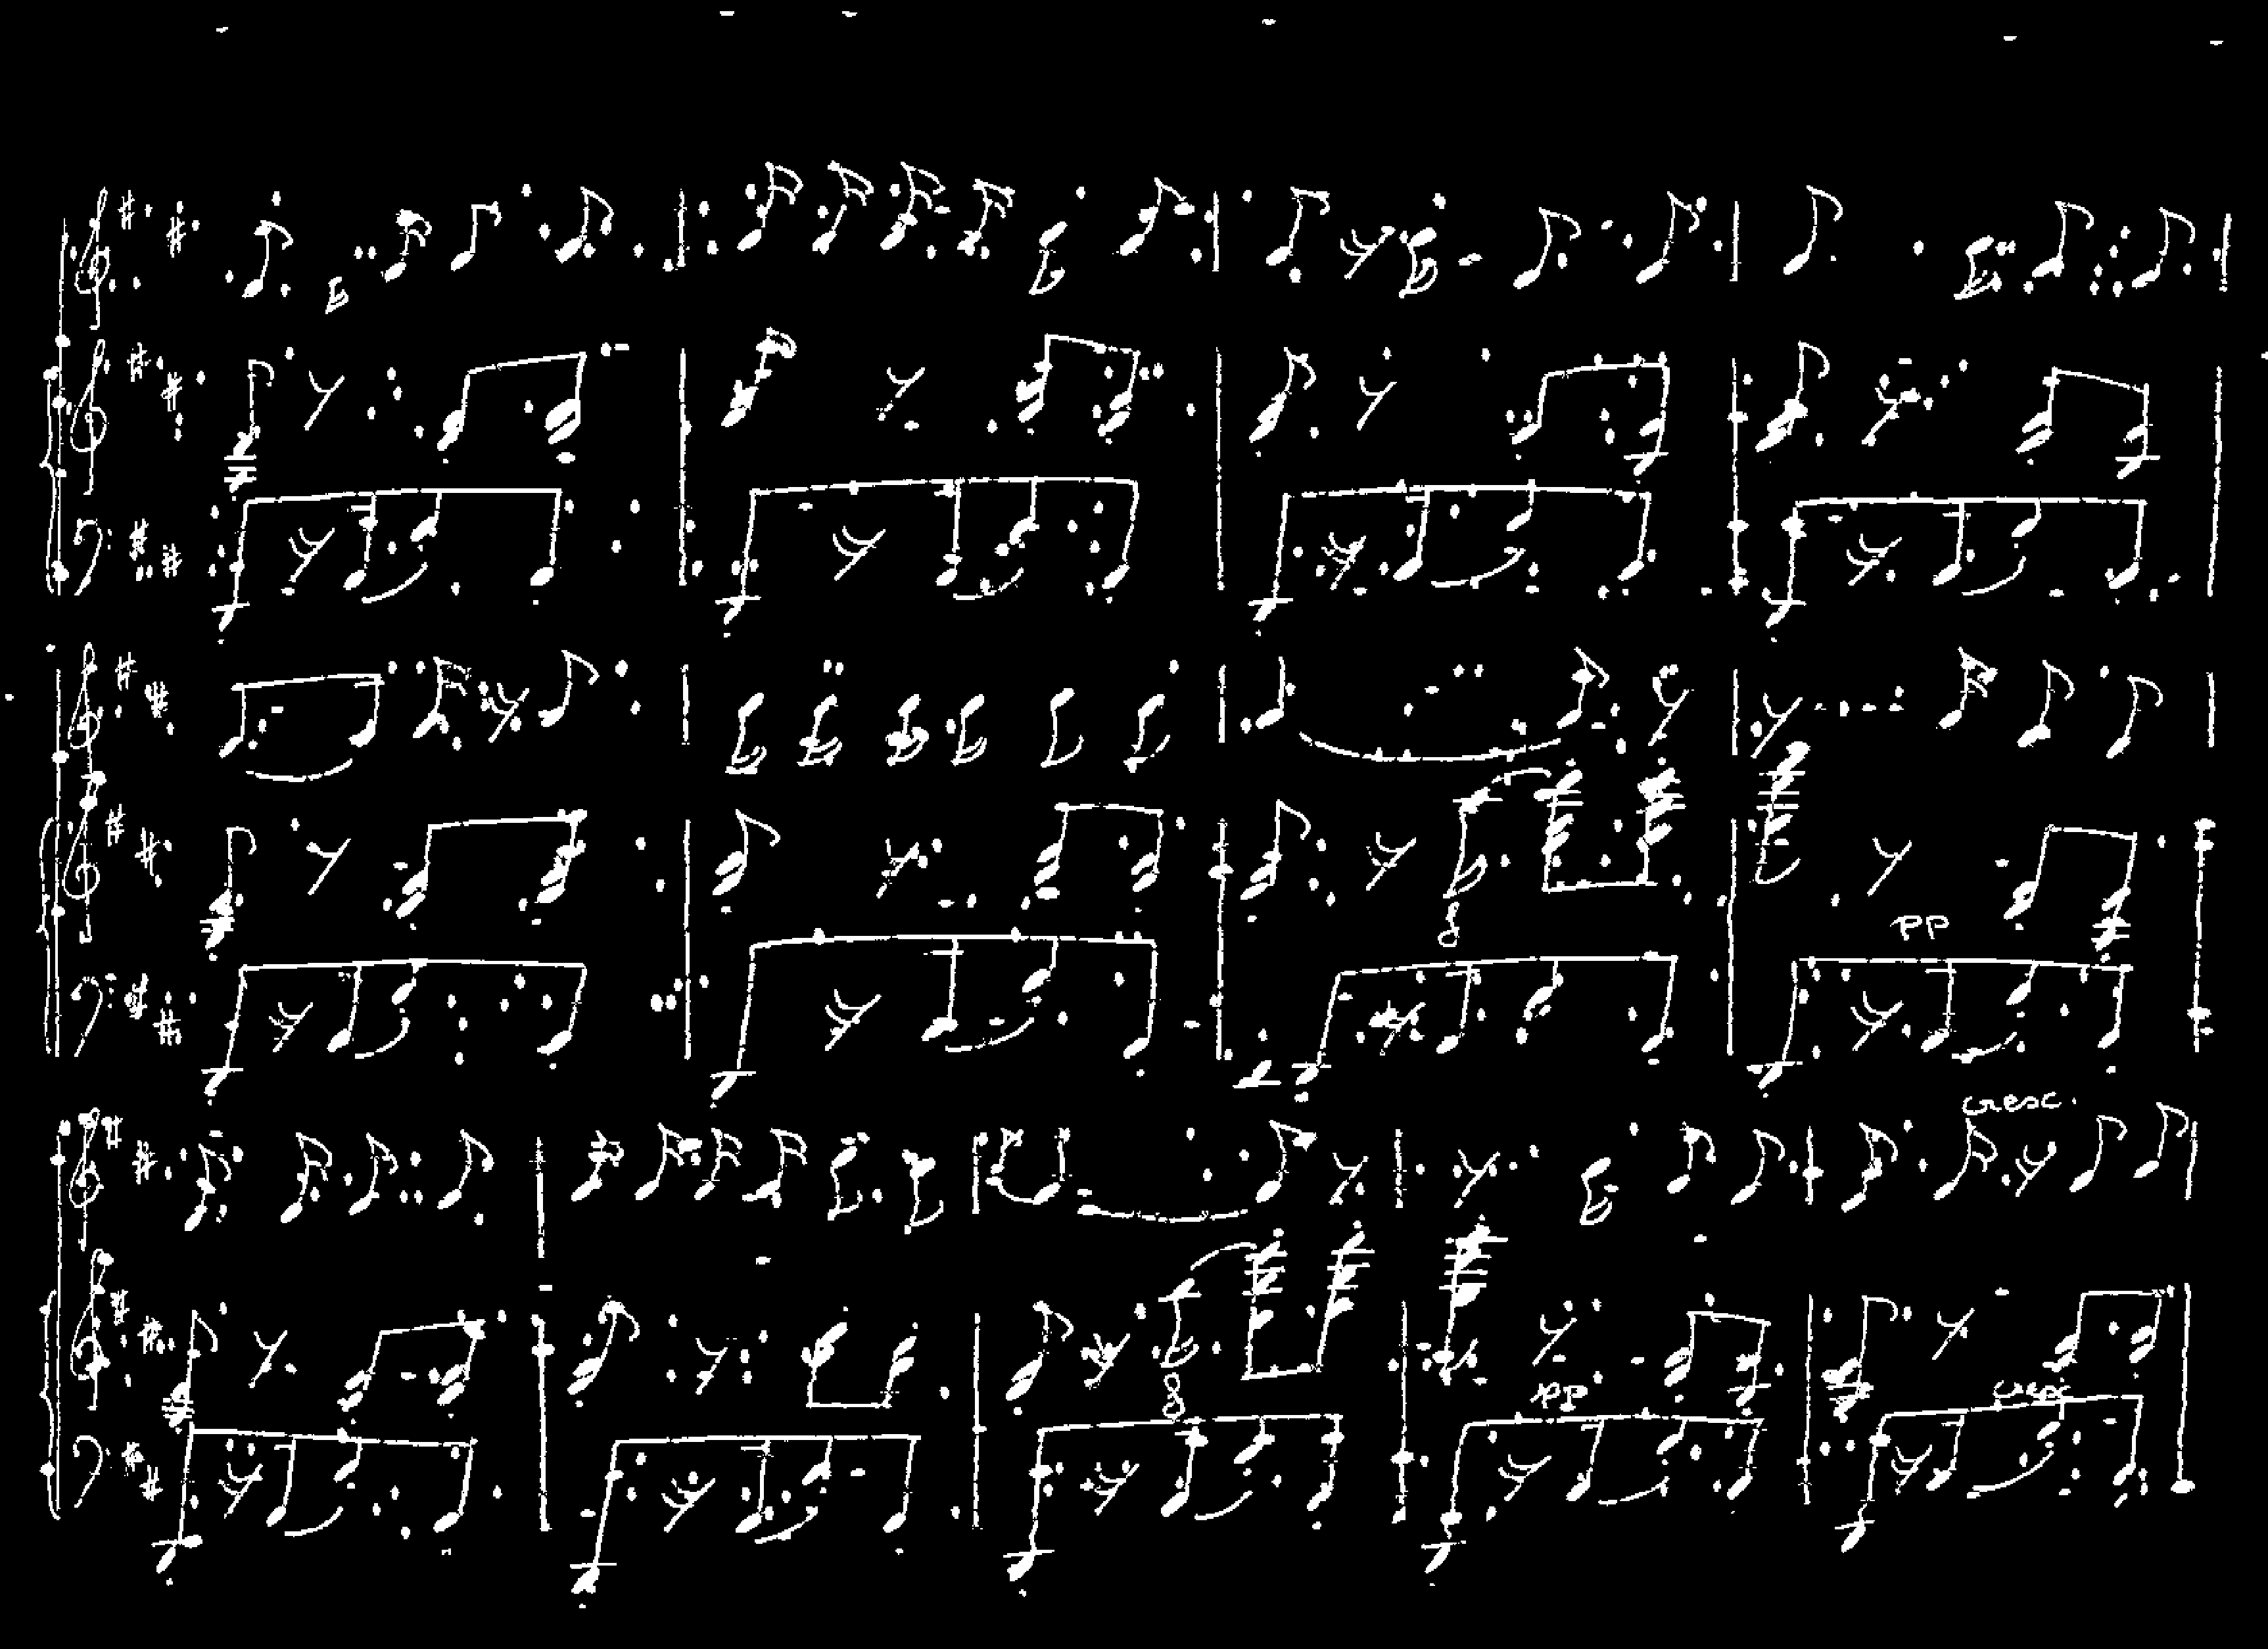 8
pp
cresc.
8
pp
cresc